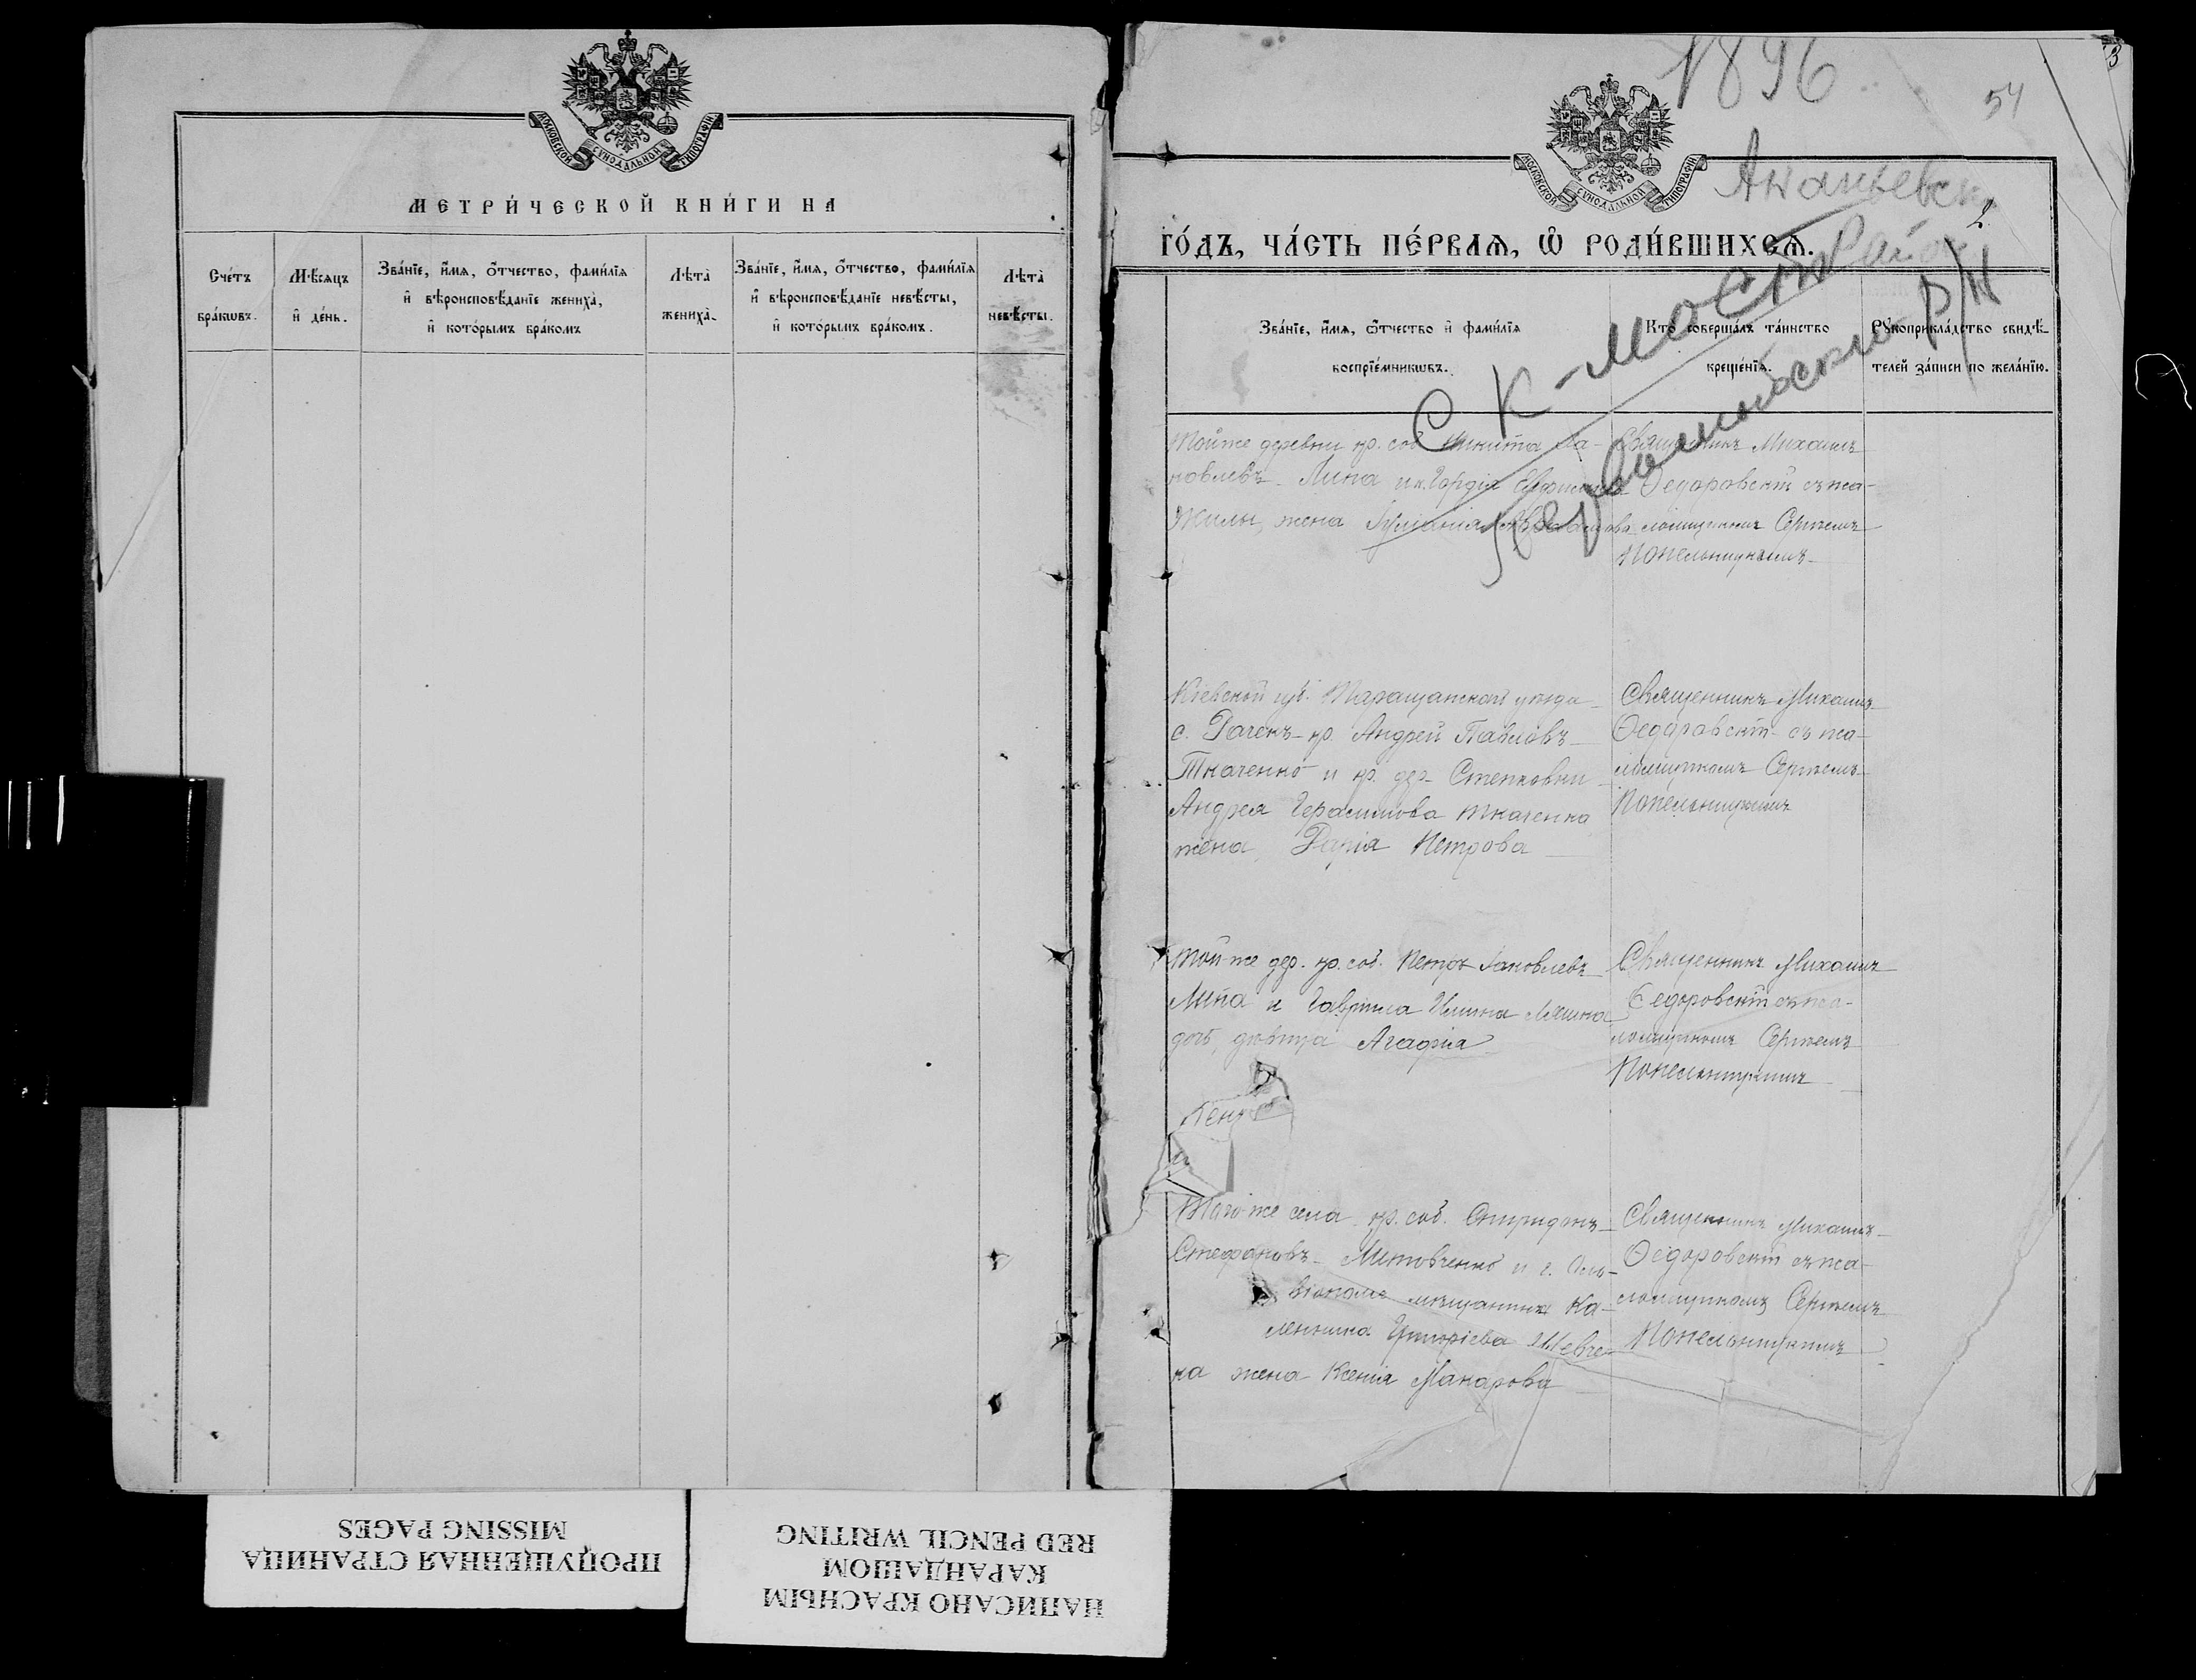 МОСКОВСКОЙ СѴНОДАЛЬНОЙ ТИПОГРАФІИ
МЕТРИ́ЧЕСКОЙ КНИ́ГИ НА
Сче́тъ бра́кѡвъ.
Мѣ́сяцъ и҆ де́нь.
Зва́нїе, и҆́мѧ, ѻ҆́тчество, фамилїѧ
и҆ вѣроисповѣ́данїе жениха̀,
и҆ кото́рымъ бра́комъ
Лѣта̀ жениха̀.
Зва́нїе, и҆́мѧ, ѻ҆́тчество, фамилїѧ
и҆ вѣроисповѣ́данїе невѣ́сты,
и҆ кото́рымъ бра́комъ.
Лѣта̀ невѣ́сты.
1896
3
54
МОСКОВСКОЙ СѴНОДАЛЬНОЙ ТИПОГРАФІИ
Ананьевск
2
ГО́ДЪ, ЧА́СТЬ ПЕ́РВАѦ, Ѡ҆ РОДИ́ВШИХСѦ.
С К-мости
Первомайский р/н
Зва́нїе, и҆́мѧ, ѻ҆́тчество и҆ фамилїѧ
воспрїе́мникѡвъ.
Кто̀ соверша́лъ та́инство
креще́нїѧ.
Рꙋкоприкла́дство свидѣ́-
телей за́писи по жела́нїю.
Тойже деревни кр. соб. Никита Яа-
ковлевъ Лина и кр. Гордія
жена
Священникъ Михаилъ
Ѳедоровскій съ пса-
ломщикомъ Сергѣемъ
Попельницкимъ
Кіевской губ. Таращанскаго уѣзда
с. кр. Андрей Павловъ
Ткаченко и кр. дер. Степковки
Андрея Герасимова Ткаченка
жена Дарія Петрова
Священникъ Михаилъ
Ѳедоровскій съ пса-
ломщикомъ Сергѣемъ
Попельницкимъ
Той-же дер. кр. соб. Петръ Іаковлевъ
Лина и Гавріила
дочь, дѣвица Агафія
Священникъ Михаилъ
Ѳедоровскій съ пса-
ломщикомъ Сергѣемъ
Попельницкимъ
Того-же села кр. соб. Спиридонъ
Стефановъ и г. Оль-
віополя мѣщанина Ка-
ленника Григоріева Шевче-
ка жена Ксенія Макарова
Священникъ Михаилъ
Ѳедоровскій съ пса-
ломщикомъ Сергѣемъ
Попельницкимъ
ПРОПУЩЕННАЯ СТРАНИЦА
MISSING PAGES
НАПИСАНО КРАСНЫМ
КАРАНДАШОМ
RED PENCIL WRITING